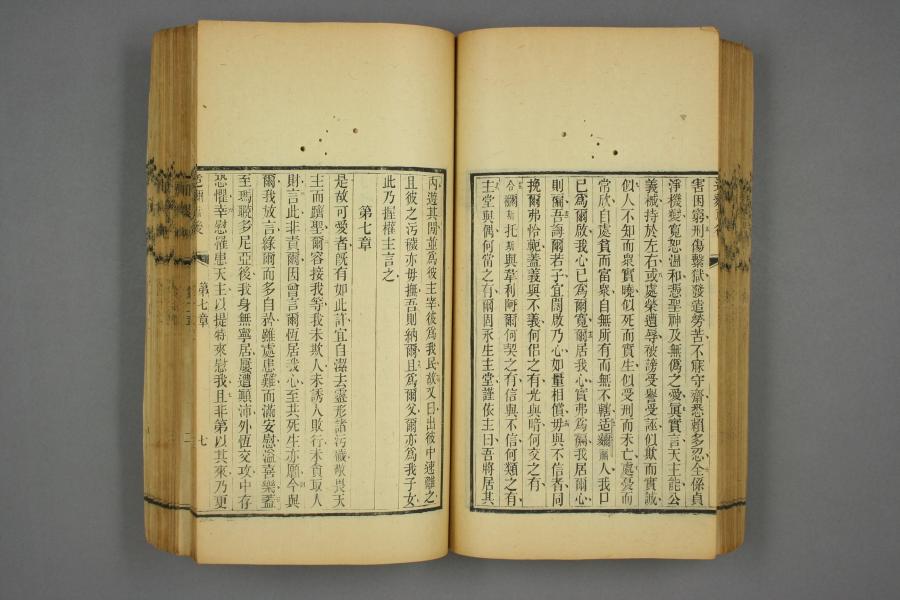 害困窮刑傷繫獄發遣勞苦不寐守齋悉賴多忍全係貞
淨機變寬恕溫和憑聖神及無偽之愛眞實言天主能公
義械持於左右或處榮遭辱被謗受譽受誣似欺而實誠
似人不知而衆實曉似死而實生似受刑而未亡處憂而
常欣自處貧而富衆自無所有而無不轄适 人我口
已為爾啟我心已為爾寬爾居我心實弗為 我居爾心
則 吾誨爾若子宜闊啟乃心如量相償毋與不信者同
挽爾弗恰軛蓋義與不義何侶之有光與暗何交之有
合 托 與皁利阿爾何契之有信與不信何類之有
主堂與偶何當之有爾固永生主堂謹依主曰吾將居其
內遊其間並為彼主宰彼為我民故又曰出彼中速離之
且彼之污穢亦毋撫吾則納爾且為爾父爾亦為我子女
此乃握權主言之
第七章
是故可愛者旣有如此許宜自潔去靈形諸污穢敬畏天
主而躋聖爾容接我等我未欺人未誘人敗行未貪取人
財言此非責爾因曾言爾恆居我心至共死生亦願今與
爾我放言緣爾而多自於雖處患難而滿安慰溢喜樂蓋
至瑪聯多尼亞後我身無寧居屢遭顚沛外恆交攻中存
恐懼幸慰罹患天主以提特來慰我且非第以其來乃更
第七章
七